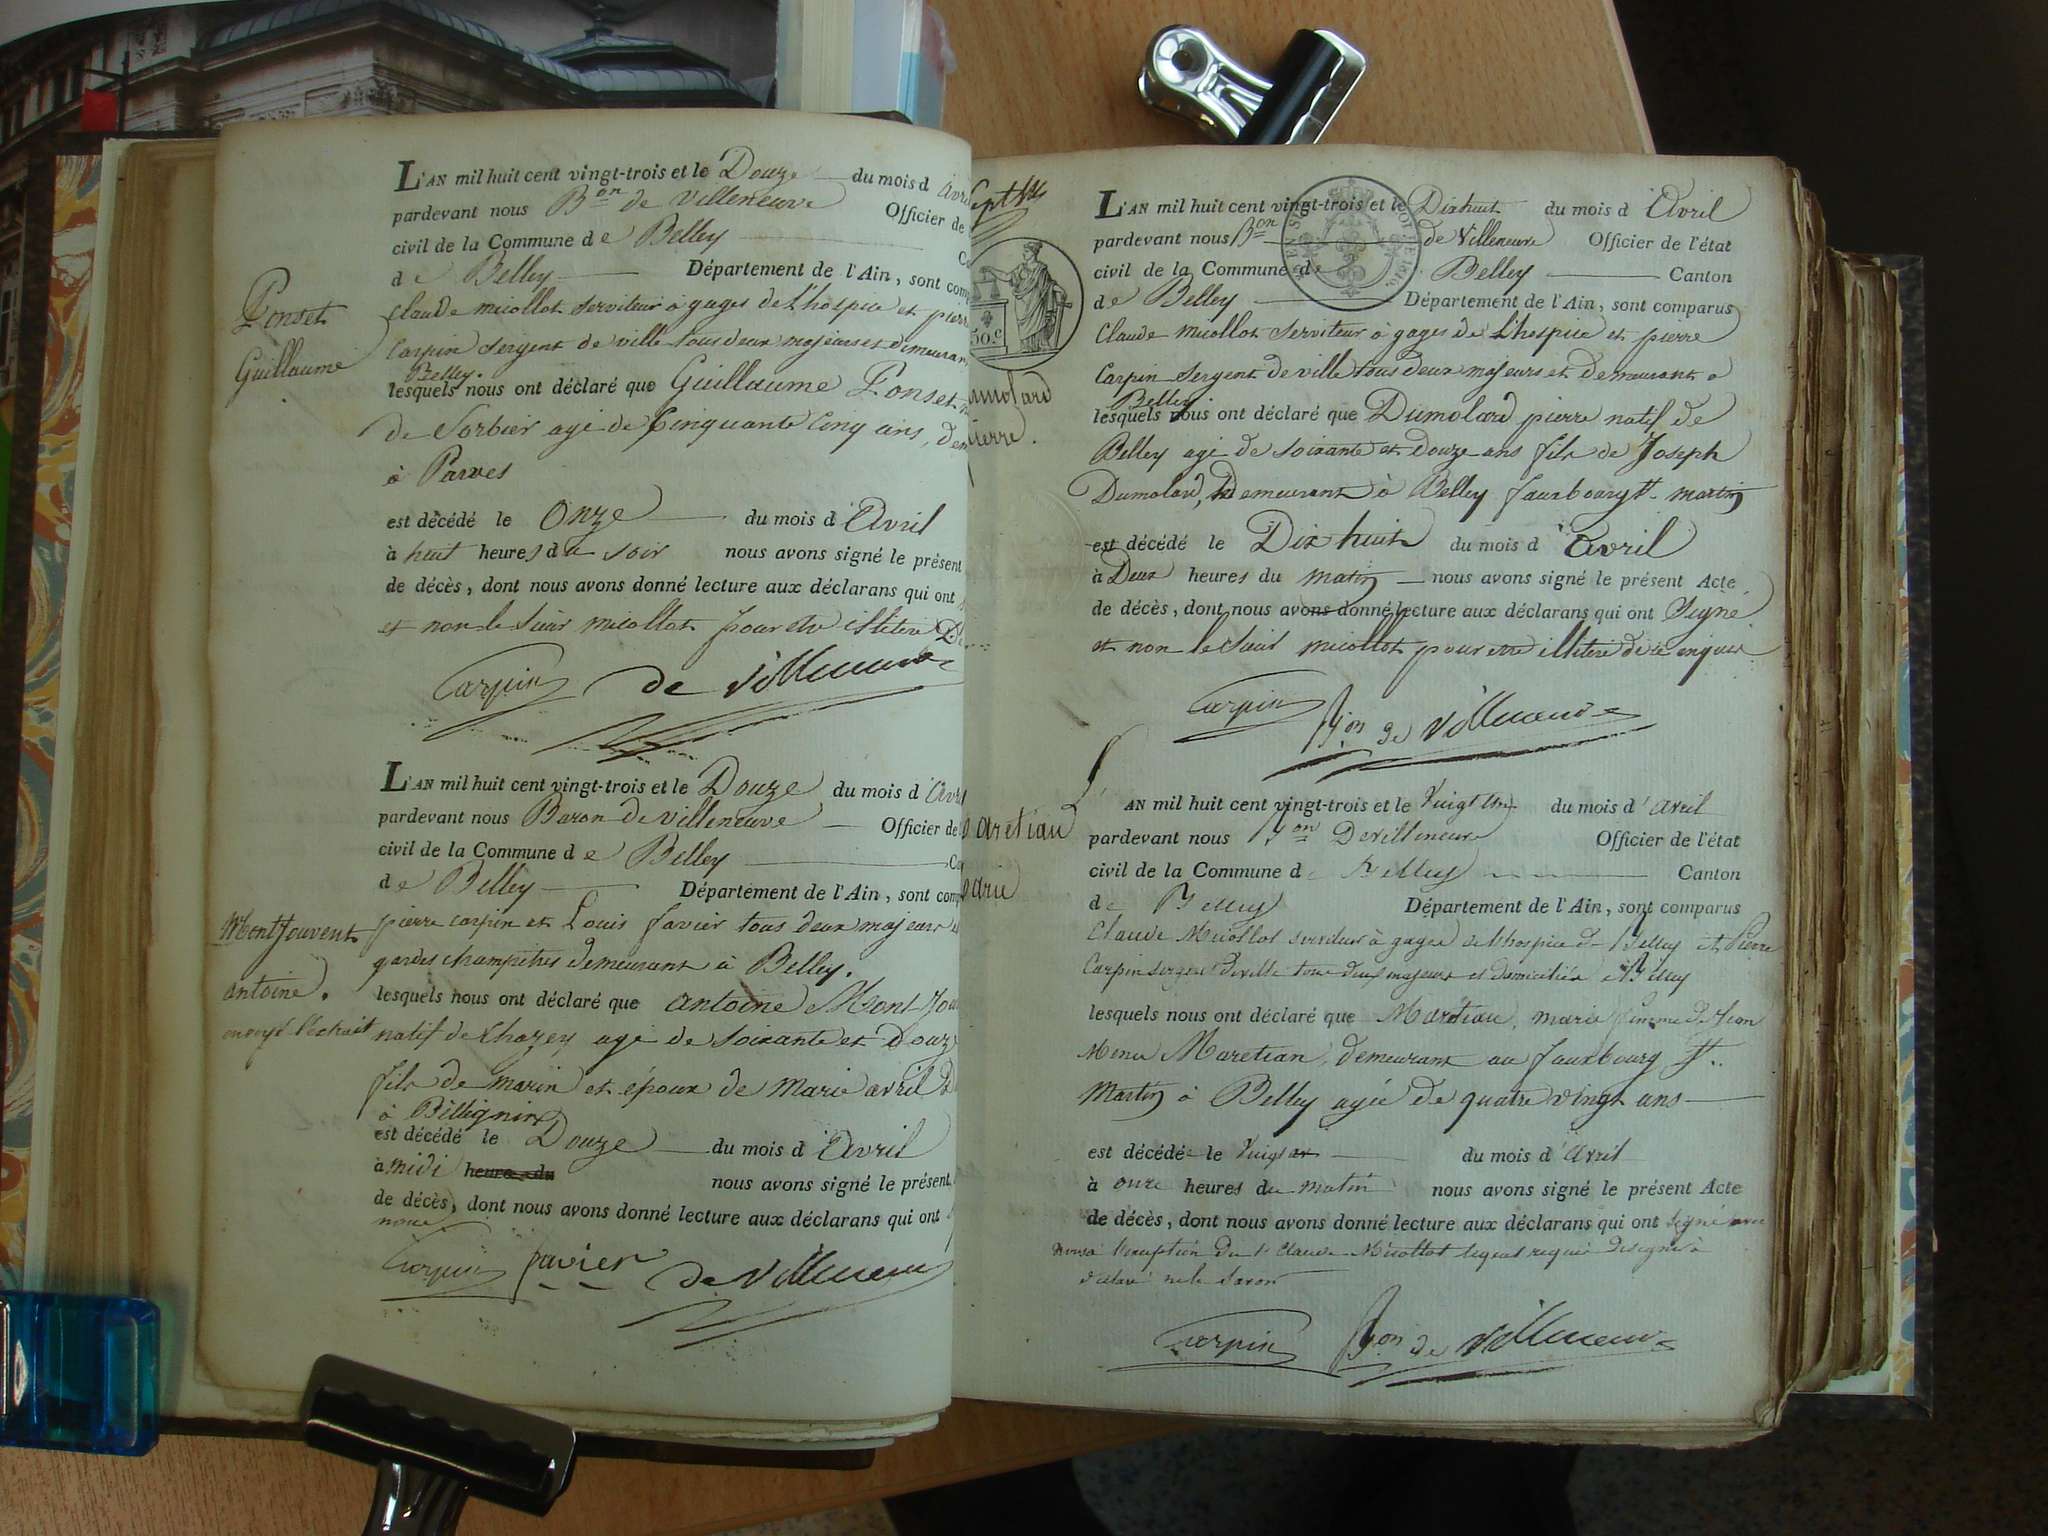 L'AN mil huit cent vingt-trois et le Douze du mois d'Avril
pardevant nous Bon de Villeneuve Officier de
civil de la Commune de Belley
de Belley Département de l'Ain, sont comp
Claude micollot serviteur à gages de L'hospice et pierre
Carpin sergent de ville tous deux majeurs et demeurant
Belley.
Ponset
Guillaume
lesquels nous ont déclaré que Guillaume Ponset
de Sorbier agé de Cinquante Cinq ans, dem
à Parves
est décédé le Onze du mois d'Avril
à huit heures du soir nous avons signé le présent
de décès, dont nous avons donné lecture aux déclarans qui ont
et non le Sieur micollot pour être illitéré
Carpin de Villeneuve
L'AN mil huit cent vingt-trois et le Douze du mois d'Avril
pardevant nous Baron de Villeneuve Officier de
civil de la Commune de Belley
de Belley Département de l'Ain, sont comp
pierre carpin et Louis favier tous deux majeurs
gardes champêtres demeurant à Belley.
Montjouvent
antoine.
envoyé l'extrait
lesquels nous ont déclaré que antoine Montjou
natif de Charey agé de Soixante et Douze
fils de marin et époux de Marie avril
à Bellignin
est décédé le Douze du mois d'Avril
à midi heures du
nous avons signé le présent
de décès, dont nous avons donné lecture aux déclarans qui ont
nous
Carpin favier de Villeneuve
Sept
50.c
L'AN mil huit cent vingt-trois et le Dixhuit du mois d'Avril
pardevant nous Bon de Villeneuve Officier de l'état
civil de la Commune de Belley Canton
de Belley Département de l'Ain, sont comparus
Claude micollot serviteur à gages de L'hospice et pierre
Carpin Sergent de ville tous deux majeurs et demeurant à
Belley
umolard
ierre.
lesquels nous ont déclaré que Dumolard pierre natif de
Belley agé de soixante et Douze ans fils de Joseph
Dumolard, Demeurant à Belley fauxbourg St. martin
est décédé le Dix huit du mois d'Avril
à Deux heures du matin nous avons signé le présent Acte
de décès, dont nous avons donné lecture aux déclarans qui ont Signé
et non le Sieur micollot pour être illitéré de ce enquis
Carpin Bon de Villeneuve
L'AN mil huit cent vingt-trois et le Vingt Un du mois d'avril
pardevant nous Bon De Villeneuve Officier de l'état
civil de la Commune de Belley Canton
de Belley Département de l'Ain, sont comparus
Claude Micollot serviteur à gages de l'hospice de Belley et Pierre
Carpin sergent de ville tous deux majeurs et domiciliés à Belley
aretiau
arie
lesquels nous ont déclaré que Maretiau, marie femme de Jean
Maretian, demeurant au fauxbourg St.
Martin à Belley agée de quatre vingt ans
est décédée le Vingt du mois d'Avril
à onze heures du matin nous avons signé le présent Acte
de décès, dont nous avons donné lecture aux déclarans qui ont signé avec
nous à l'exception du Sr Claude Micollot lequel requis de signer à
déclaré ne le savoir
Carpin Bon de Villeneuve